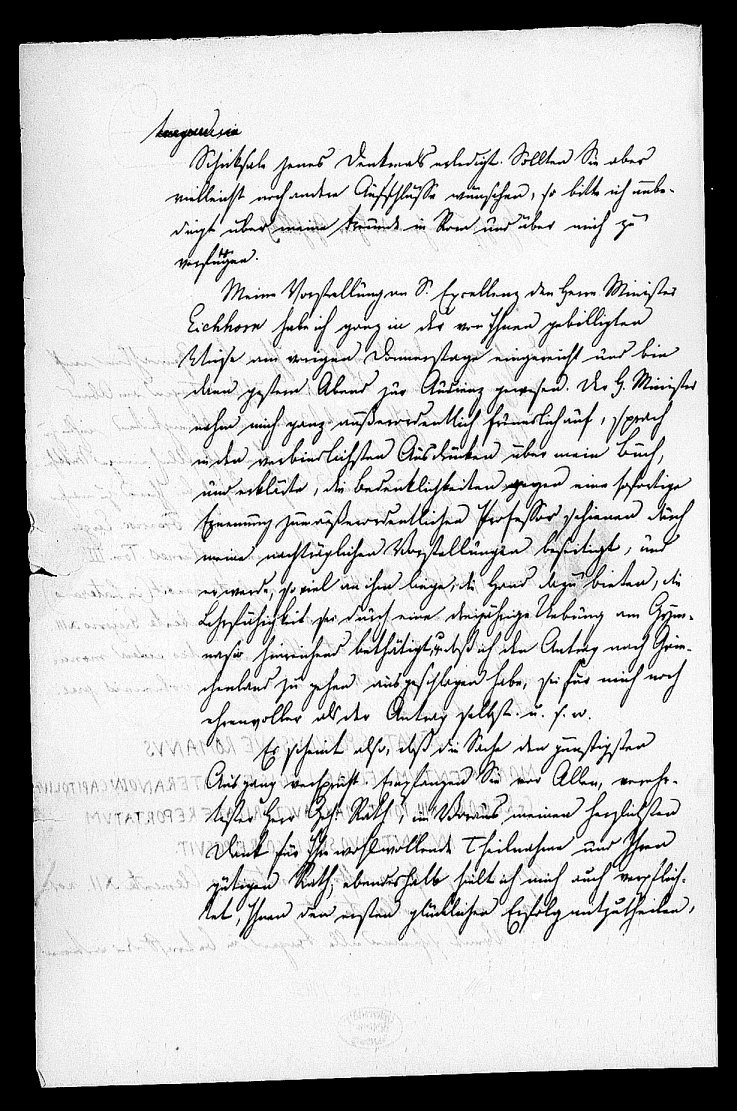 Schicksale jenes Denkmals erledigt. Sollten Sie aber
vielleicht noch andre Aufschlüsse wünschen, so bitte ich unbe-
dingt über meine Freunde in Rom und über mich zu
verfügen.
Meine Vorstellung an S. Excellenz den Herrn Minister
Eichhorn habe ich ganz in der von Ihnen gebilligten
Weise am vorigen Donnerstage eingereicht und bin
dann gestern Abend zur Audienz gewesen. Der H. Minister
nahm mich ganz außerordentlich freundlich auf, sprach
in den verbindlichsten Ausdrücken über mein Buch,
und erklärte, die Bedenklichkeiten gegen eine sofortige
Ernennung zum außerordentlichen Professor schienen durch
meine nachträglichen Vorstellungen beseitigt, und
er werde, so viel an ihm liege, die Hand dazu bieten, die
Lehrfähigkeit sei durch eine dreijährige Uebung am Gym-
nasio hinreichend bethätigt, u. daß ich den Antrag nach Grie-
chenland zu gehen ausgeschlagen habe, sei für mich noch
ehrenvoller als der Antrag selbst. u. s. w.
Es scheint also, daß die Sache den günstigsten
Ausgang verspricht. Empfangen Sie vor Allen, verehr-
tester Herr Geh. Rath, im Voraus meinen herzlichsten
Dank für Ihre wohlwollende Theilnahme und Ihren
gütigen Rath; ebendeshalb hielt ich mich auch verpflich-
tet, Ihnen den ersten glücklichen Erfolg mitzutheilen,